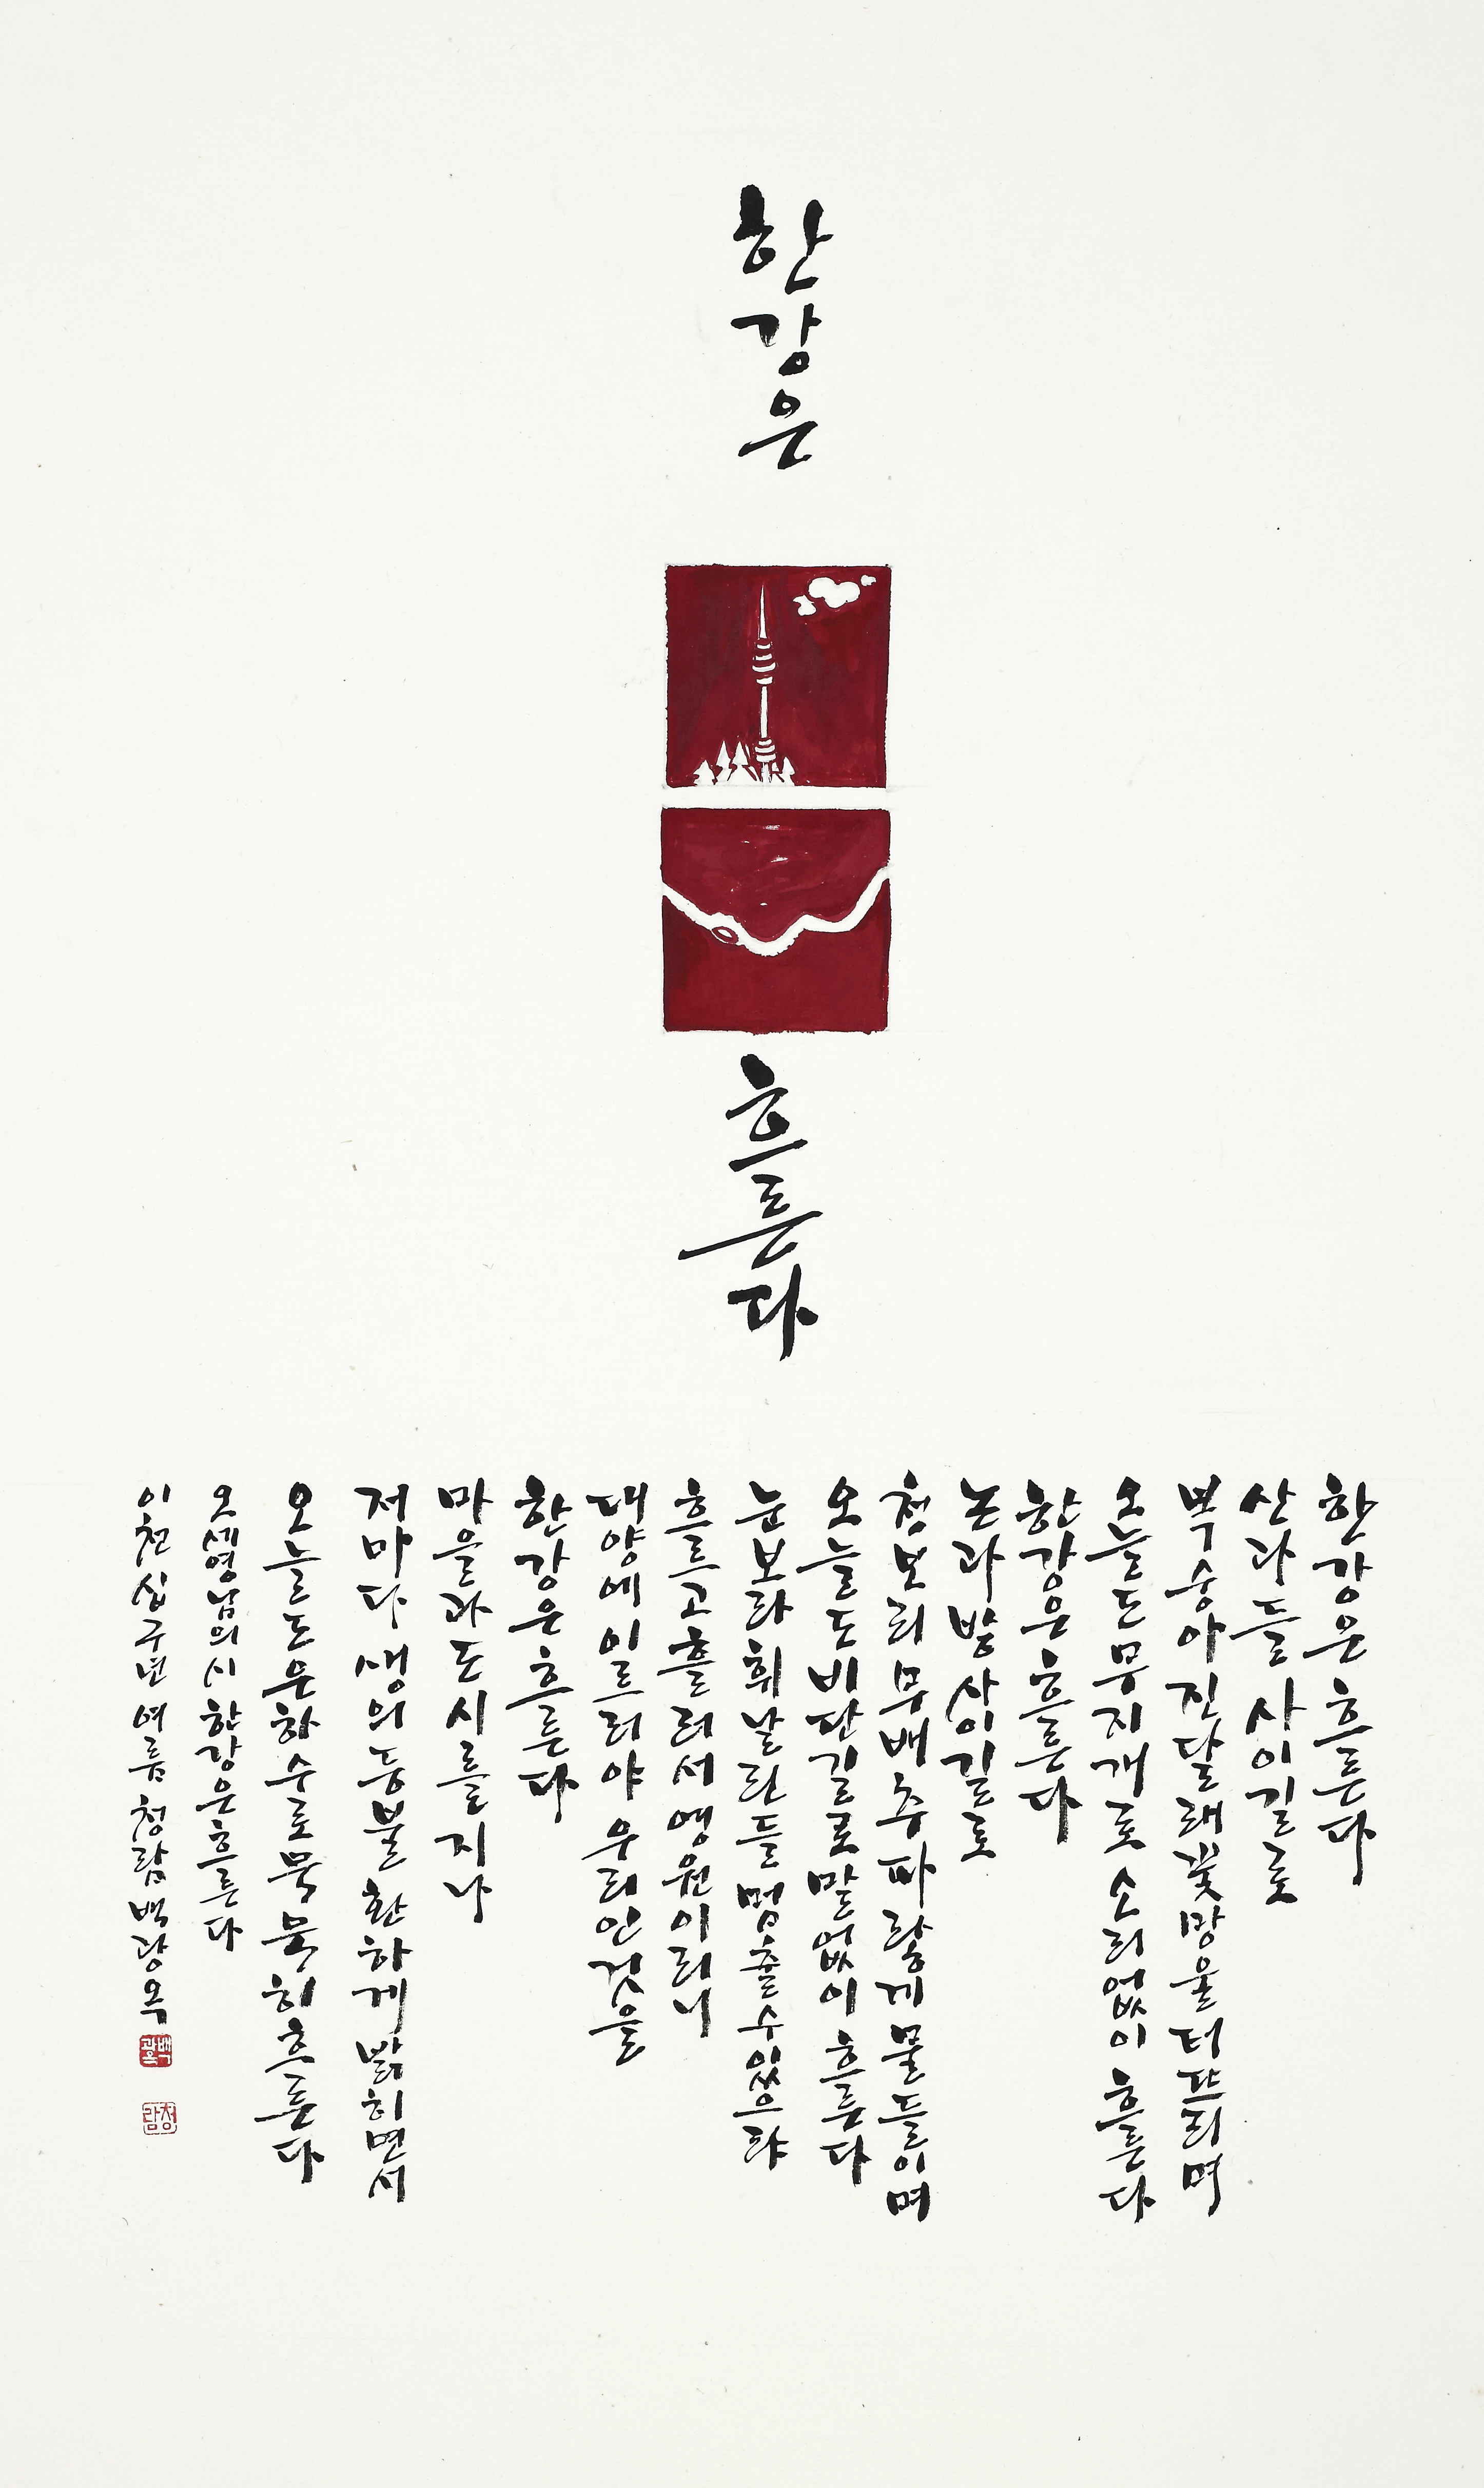 한강은
흐른다
한강은 흐른다
산과 들 사이 길로
복숭아 진달래 꽃망울 터뜨리며
오늘도 무지개로 소리없이 흐른다
한강은 흐른다
논과 밭 사이 길로
청보리 무 배추 파랗게 물들이며
오늘도 비단길로 말없이 흐른다
눈보라 휘날린들 멈출 수 있으랴
흐르고 흘러서 영원이러니
대양에 이르러야 우리인 것을
한강은 흐른다
마을과 도시를 지나
저마다 생의 등불 환하게 밝히면서
오늘도 은하수로 묵묵히 흐른다
오세영님의 시 한강은 흐른다
이천십구년 여름 청람 백광옥
백광옥
청람